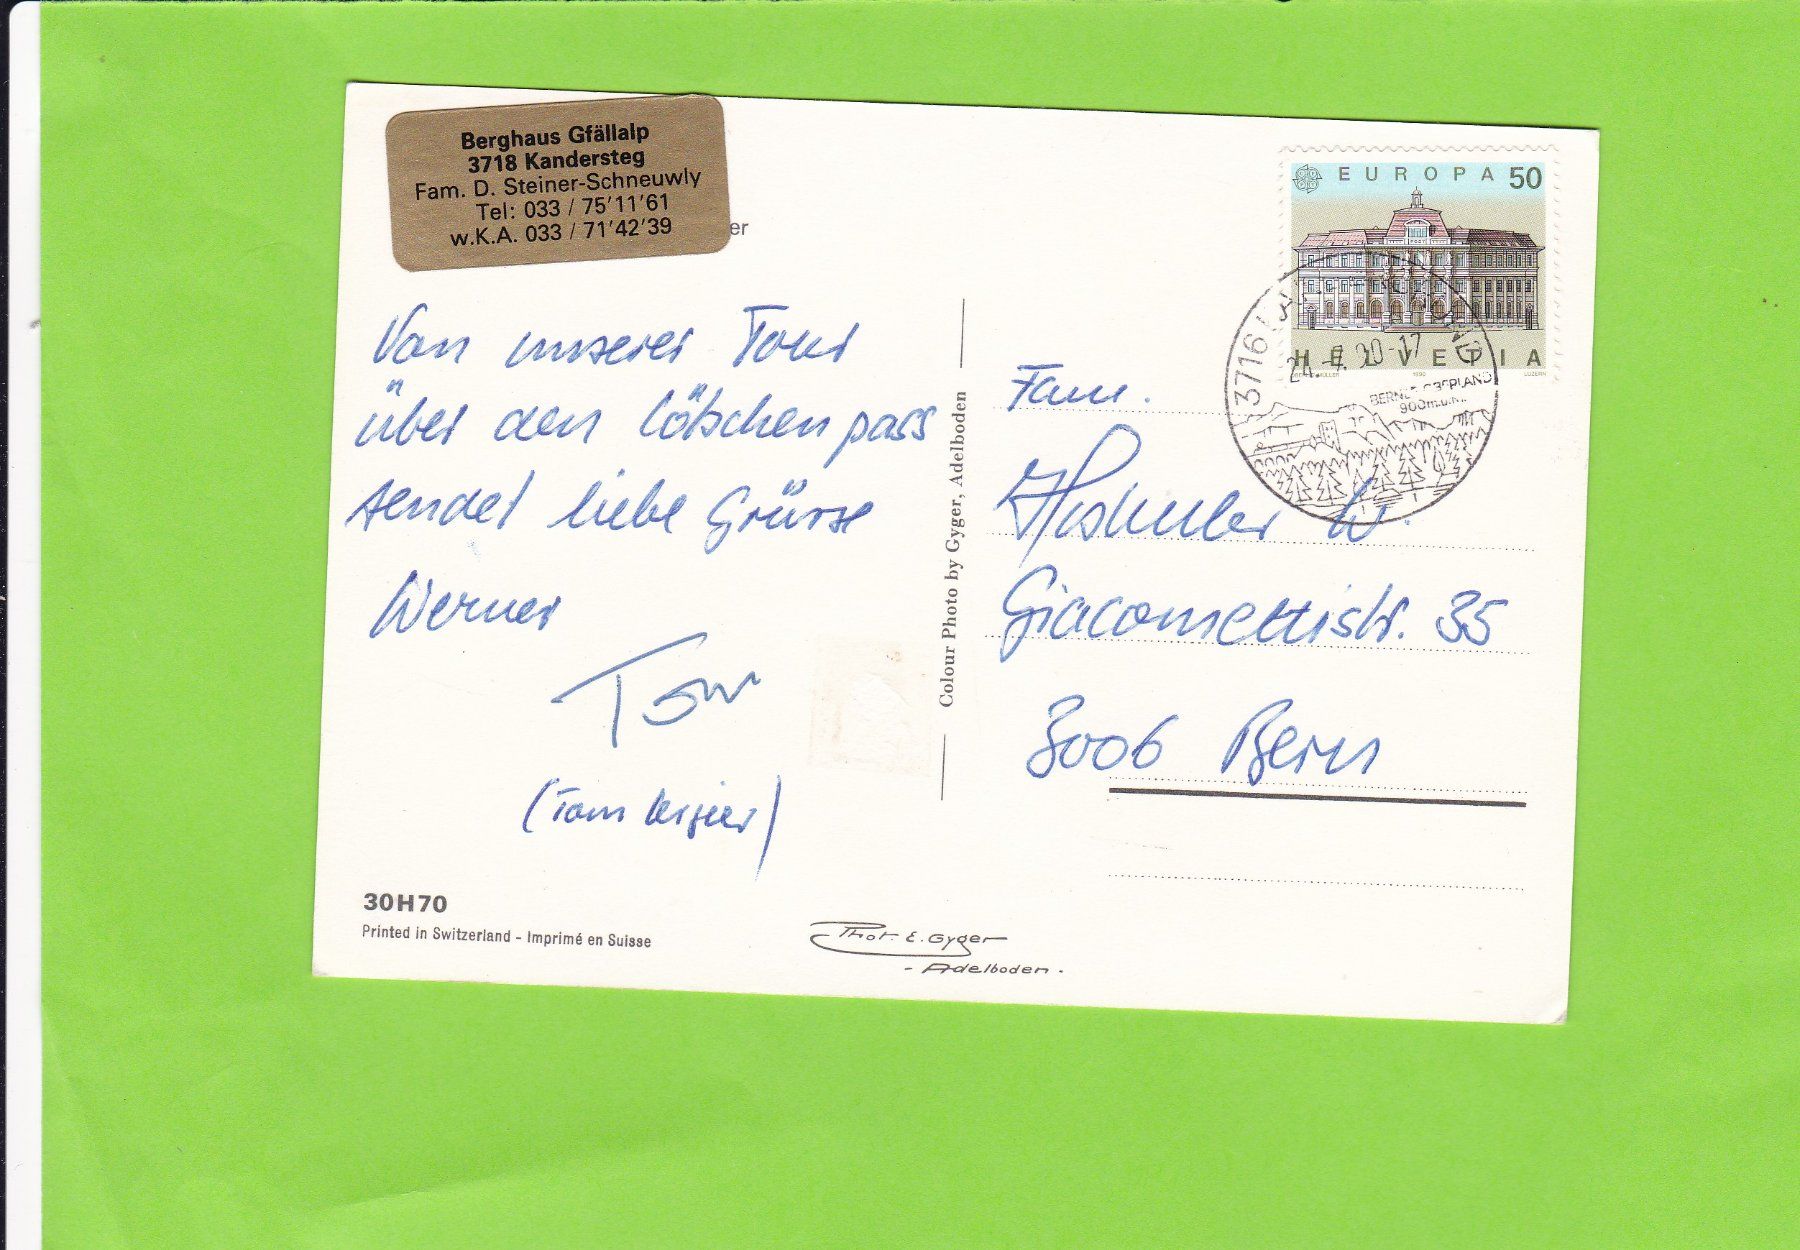 Berghaus Gfällalp
3718 Kandersteg
Fam. D. Steiner-Schneuwly
Tel: 033 / 75'11'61
w.K.A. 033 / 71'42'39
er
Von unserer Tour
über den Lötschenpass
sendet liebe Grüsse
Werner
Tom
(Tom
30H70
Printed in Switzerland - Imprimé en Suisse
Colour Photo by Gyger, Adelboden
Phot. E. Gyger
- Adelboden -
EUROPA 50
HELVETIA
1990
LUZERN
3716
90-17
BERNER OBERLAND
900m.ü.M.
Fam.
W.
Giacomettistr. 35
3006 Bern